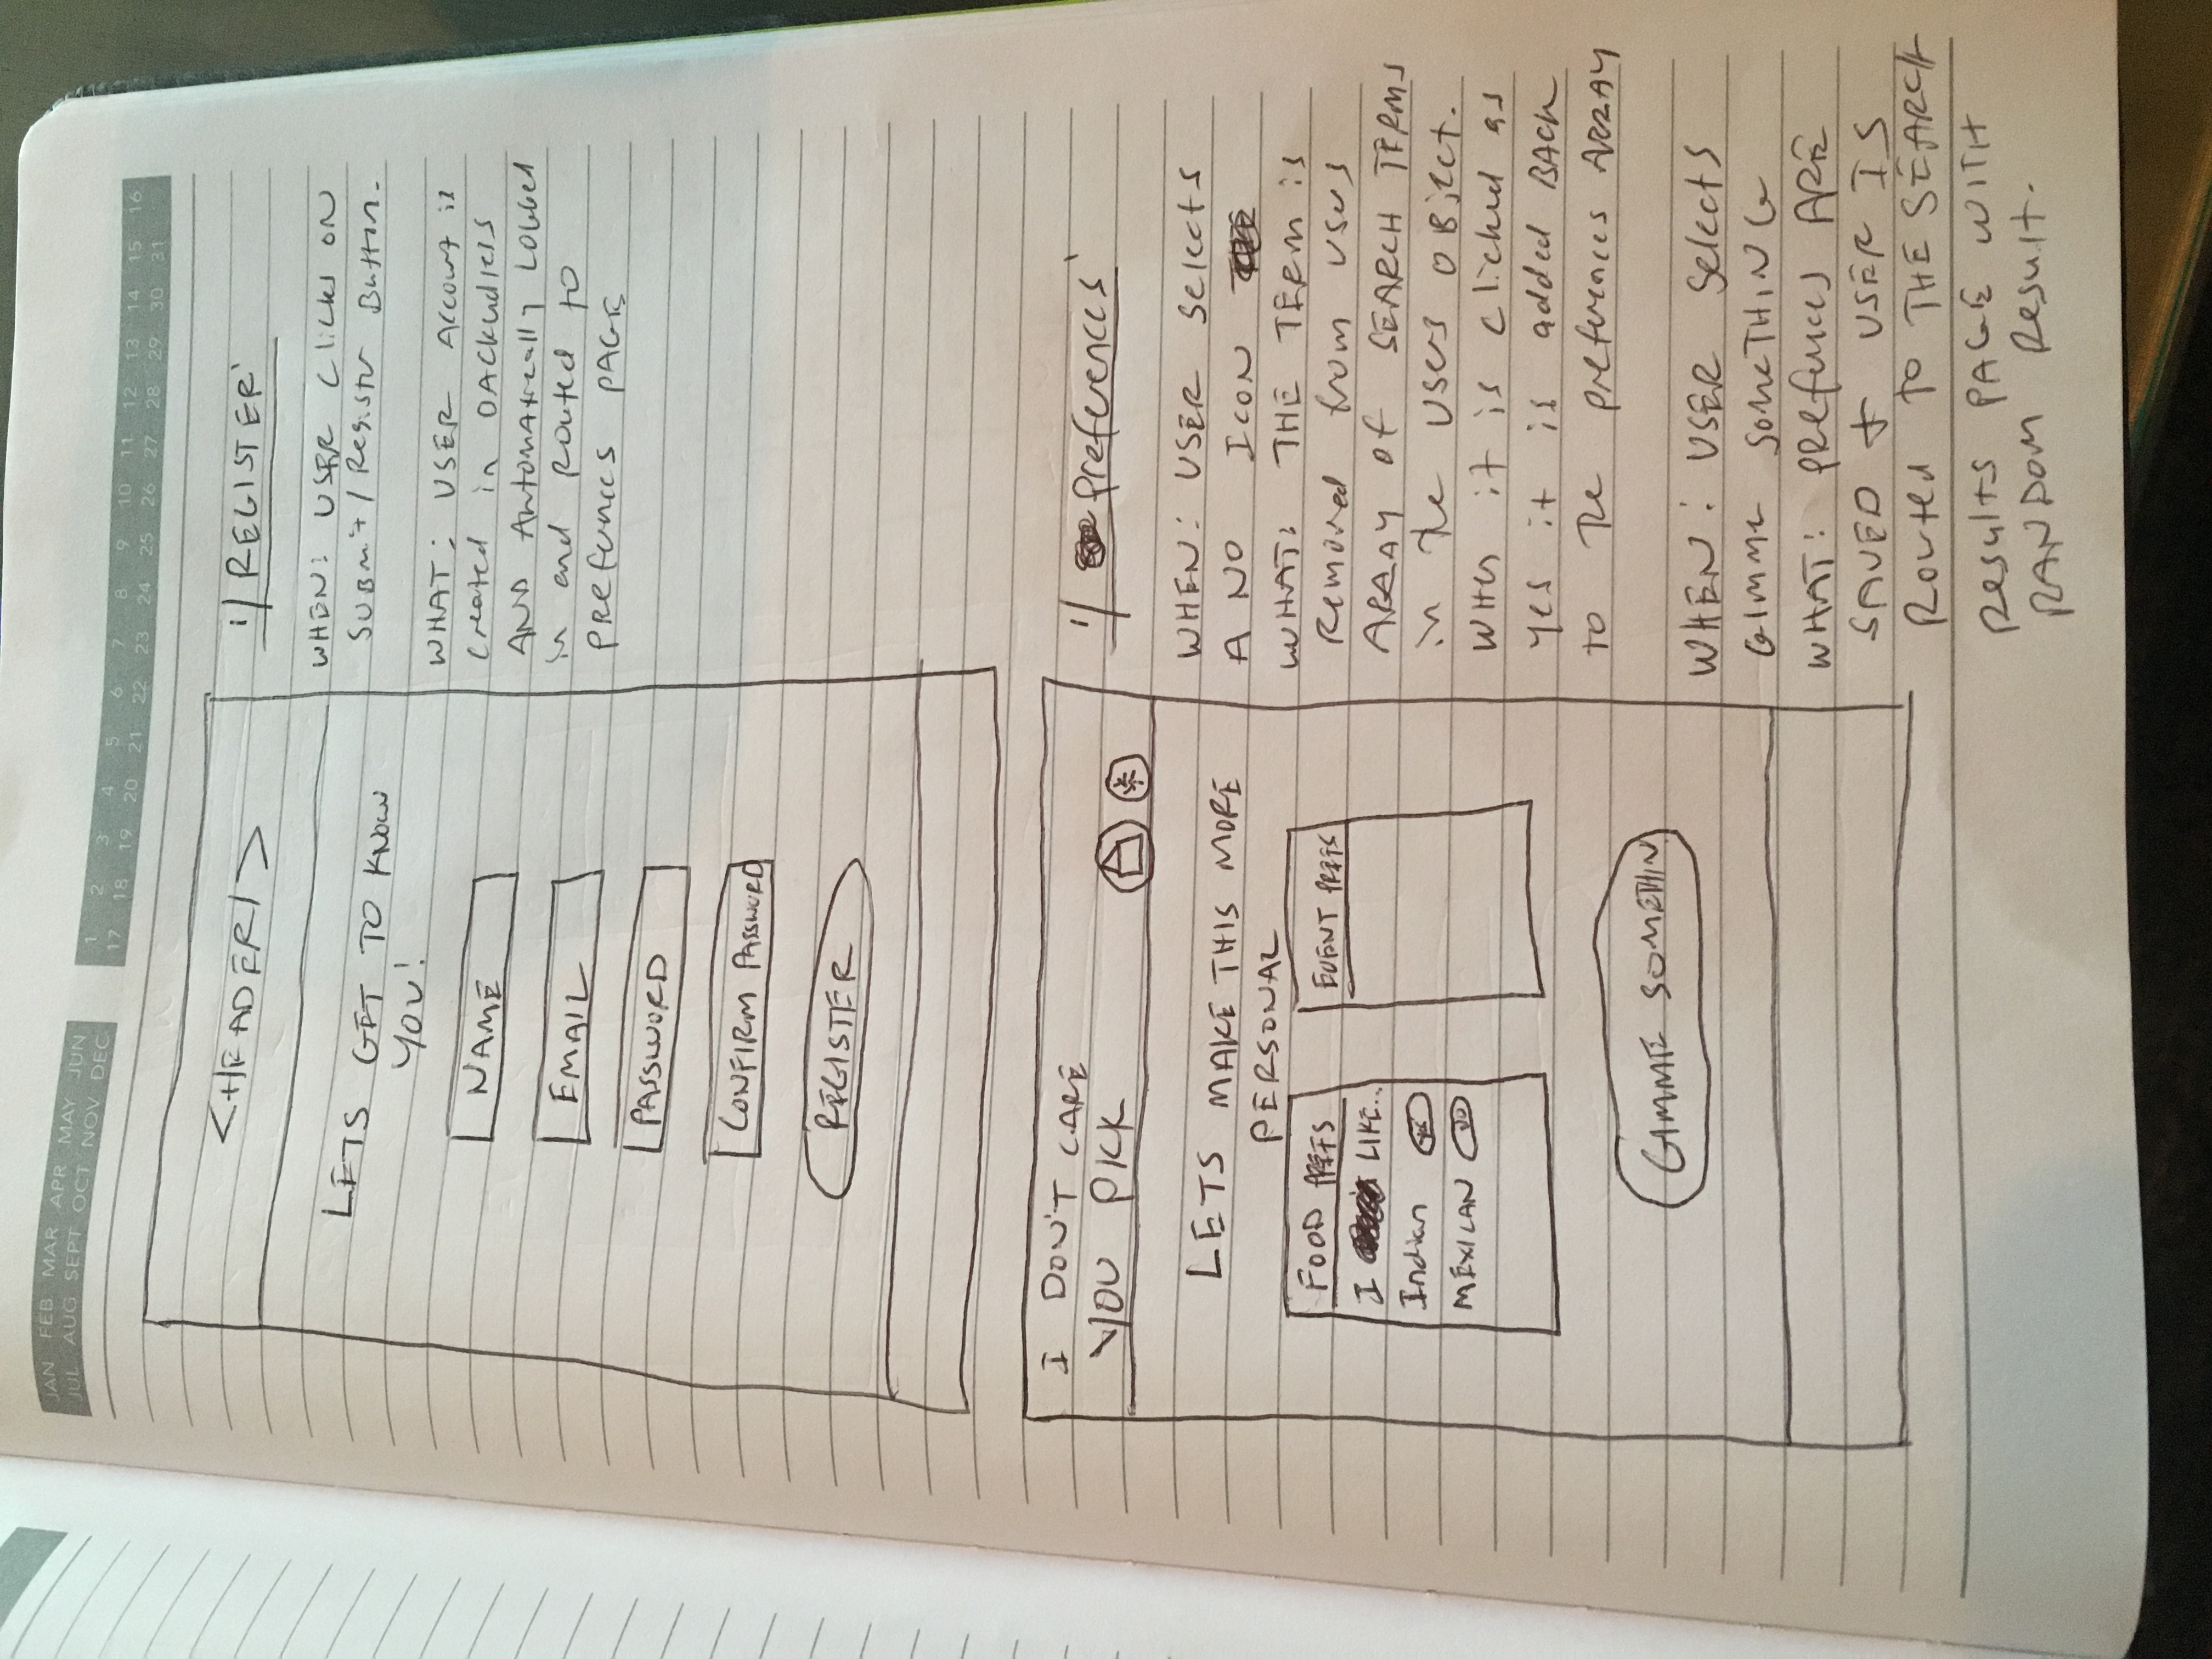 JAN FEB MAR APR MAY JUN
JUL AUG SEPT OCT NOV DEC
1 2 3 4 5 6 7 8 9 10 11 12 13 14 15 16
17 18 19 20 21 22 23 24 25 26 27 28 29 30 31
<HEADER/>
LETS GET TO KNOW
YOU!
NAME
EMAIL
PASSWORD
CONFIRM PASSWORD
REGISTER
'/REGISTER'
WHEN: USER Clicks ON
SUBmit/Register Button.
WHAT: USER Account is
created in
AND Automatically Logged
in and Routed to
Preferences PAGE
I DON'T CARE
YOU PICK
LETS MAKE THIS MORE
PERSONAL
FOOD PREFS
I LIKE..
Indian YES
MEXICAN NO
EVENT PREFS
GIMME SOMETHIN
'/ Preferences'
WHEN: USER Selects
A NO ICON
WHAT: THE TERM is
Removed from users
ARRAY of SEARCH TERMS
in the users OBject.
When it is clicked as
yes it is added BACK
to the preferences ARRAY
WHEN: USER Selects
GIMME SOMETHING
WHAT: Preferences ARE
SAVED + USER IS
Routed TO THE SEARCH
Results PAGE WITH
RANDOM Result.